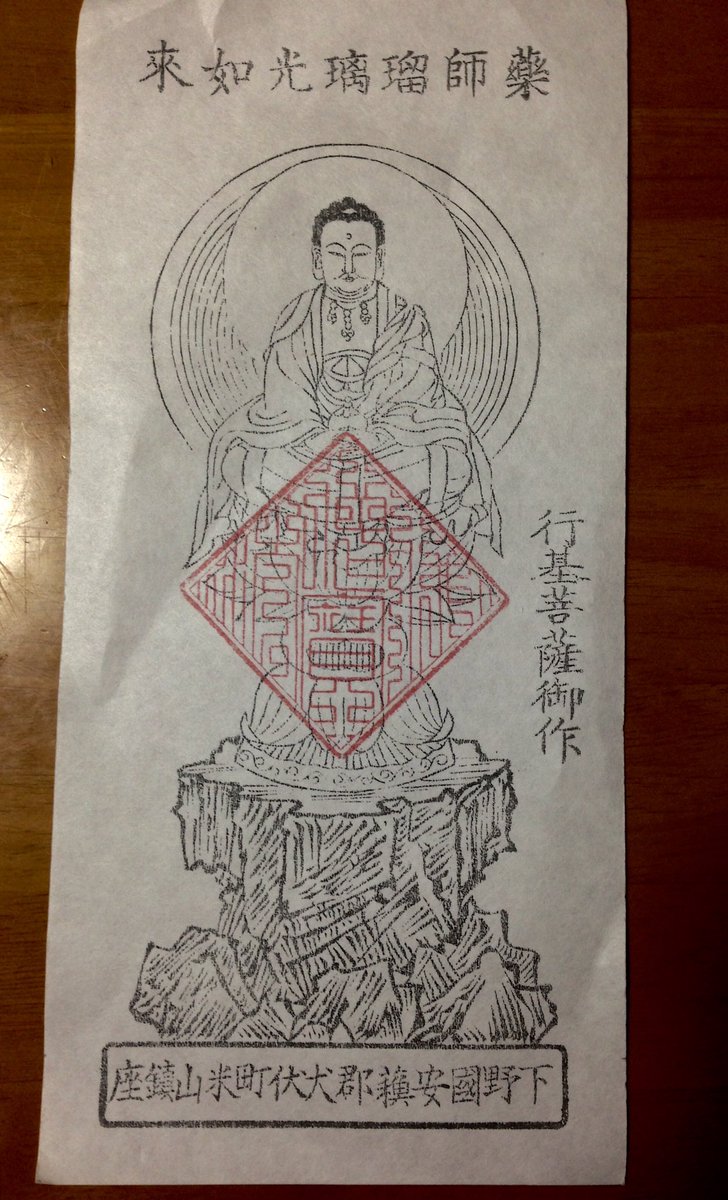 藥師瑠璃光如來
行基菩薩御作
下野國安蘓郡犬伏町米山鎮座